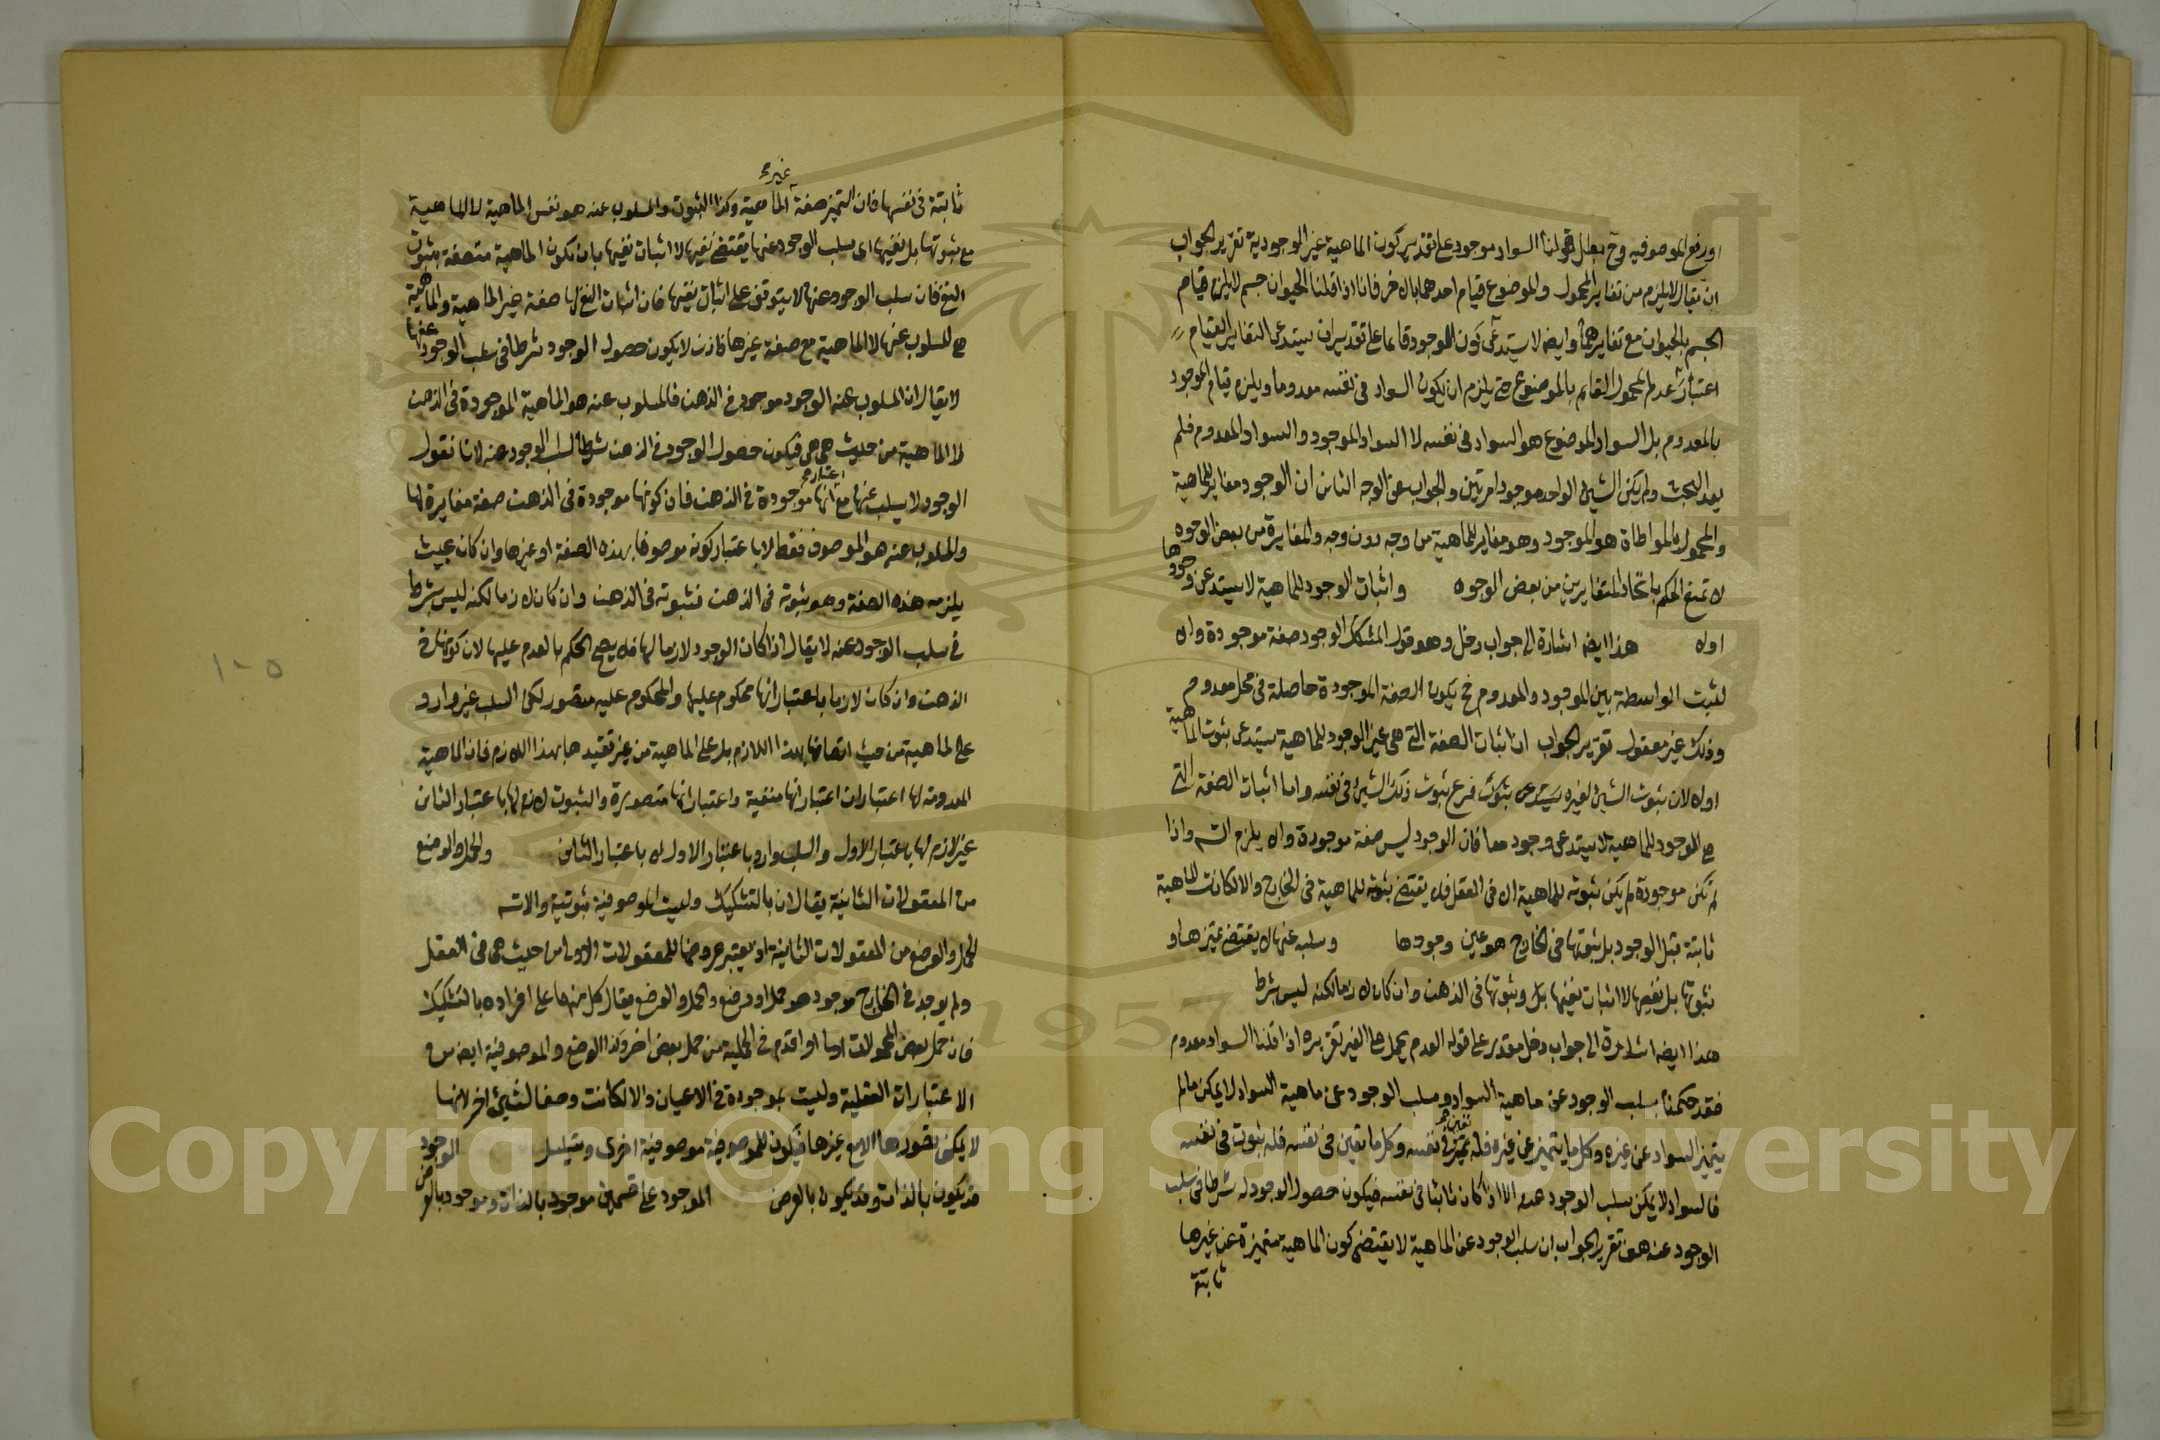 او رفع الموصوفيه وح يبطل قولنا السواد موجود على تقدير كون الماهية غير الوجودية تقرير الجواب
ان يقال لا يلزم من تغاير المحمول والموضوع قيام احدهما بالاخر فانا اذا قلنا الحيوان جسم لا يلزم قيام
الجسم بالحيوان مع تغايرهما وايضا لا يستدعى كون الموجود قائما على تقدير ان يستدعى التغاير القيام
اعتبار عدم المحمول القائم بالموضوع حتى يلزم ان يكون السواد فى نفسه معدوما ويلزم قيام الموجود
بالمعدوم بل السواد الموضوع هو السواد فى نفسه لا السواد الموجود والسواد المعدوم فلم
يعد البحث ولم يكن الشيئ الواحد موجودا مرتين والجواب عن الوجه الثانى ان الوجود مغاير للماهية
والمحمول بالمواطاة هو الموجود وهو مغاير للماهية من وجه دون وجه والمغايرة من بعض الوجوه
لا تمنع الحكم باتحاد المتغايرين من بعض الوجوه واثبات الوجود للماهية لا يستدعى وجودها
اولا هذا ايضا اشارة الى جواب دخل وهو قول المشكك الوجود صفة موجودة والا
لثبت الواسطة بين الموجود والمعدوم فح يكون الصفة الموجودة حاصلة فى محل معدوم
وذلك غير معقول تقرير الجواب ان اثبات الصفة التى هى غير الوجود للماهية يستدعى ثبوت الماهية
اولا لان ثبوت الشيئ لغيره يستدعى ثبوت فرع ثبوت ذلك الشيئ فى نفسه واما اثبات الصفة التى
هى الوجود للماهية لا يستدعى وجودها فان الوجود ليس صفة موجودة والا يلزم التس واذا
لم تكن موجودة لم يكن ثبوته للماهية الا فى العقل فلا يقتضى ثبوته للماهية فى الخارج والا لكانت الماهية
ثابتة قبل الوجود بل ثبوتها فى الخارج هو عين وجودها وسلبه عنها لا يقتضى تميزها و
ثبوتها بل نفيها لا اثبات نفيها بل وثبوتها فى الذهن وان كان لازما لكنه ليس شرط
هذا ايضا اشارة الى جواب دخل مقدر على قوله العدم يحمل على الغير تقريره اذا قلنا السواد معدوم
فقد حكمنا بسلب الوجود عن ماهية السواد وسلب الوجود عن ماهية السواد لا يمكن ما لم
يتميز السواد عن غيره وكل ما يتميز عن غيره فله تعين فى نفسه وكل ما تعين فى نفسه فله ثبوت فى نفسه
فالسواد لا يمكن سلب الوجود عنه الا اذا كان ثابتا فى نفسه فيكون حصول الوجود له شرطا فى سلب
الوجود عنه هف تقرير الجواب ان سلب الوجود عن الماهية لا يقتضى كون الماهية متميزة عن غيرها
ثابتة
غيرى
ثابتة فى نفسها فان التميز صفة الماهية وكذا الثبوت والمسلوب عنه هو نفس الماهية لا الماهية
مع ثبوتها بل نفيها اى سلب الوجود عنها يقتضى نفيها لا اثبات نفيها بان تكون الماهية متصفة بثبوت
النفى فان سلب الوجود عنها لا يتوقف على اثبات نفيها فان اثبات النفى لها صفة غير الماهية والماهية
هى المسلوب عنها لا الماهية مع صفة غيرها فاذن لا يكون حصول الوجود شرطا فى سلب الوجود عنها
لا يقال ان المسلوب عنه الوجود موجود فى الذهن فالمسلوب عنه هو الماهية الموجودة فى الذهن
لا الماهية من حيث هى هى فيكون حصول الوجود فى الذهن شرطا لسلب الوجود عنه لانا نقول
اعتبار
الوجود لا يسلب عنها مع انها موجودة فى الذهن فان كونها موجودة فى الذهن صفة مغايرة لها
والمسلوب عنه هو الموصوف فقط لا باعتبار كونه موصوفا بهذه الصفة او غيرها وان كان بحيث
يلزمه هذه الصفة وهو ثبوته فى الذهن فثبوته فى الذهن وان كان لازما لكنه ليس بشرط
فى سلب الوجود عنه لا يقال اذا كان الوجود لازما لها فلا يصح الحكم بالعدم عليها لان كونها فى
الذهن وان كان لازما باعتبار انها محكوم عليها والمحكوم عليه متصور لكن السلب غير وارد
على الماهية من حيث اتصافها بهذا اللازم بل على الماهية من غير تقييدها بهذا اللازم فان الماهية
المعدومة لها اعتباران اعتبار انها منفية واعتبار انها متصورة والثبوت لازم لها باعتبار الثانى
غير لازم لها باعتبار الاول والسلب وارد باعتبار الاول لا باعتبار الثانى والحمل والوضع
من المعقولات الثانية يقالان بالتشكيك وليست الموصوفية ثبوتية والا تس
الحمل والوضع من المعقولات الثانية اذ يعتبر عروضها للمعقولات الاولى من حيث هى فى العقل
ولم يوجد فى الخارج موجود هو حمل او وضع والحمل والوضع يقال كل منها على افراده بالتشكيك
فان حمل بعض المحمولات اولى او اقدم فى الحملية من حمل بعض اخر وكذا الوضع والموصوفية ايضا من
الاعتبارات العقلية وليست بموجودة فى الاعيان والا لكانت وصفا لشيئ اخر لانها
لا يمكن تصورها الا مع غيرها فيكون للموصوفية موصوفية اخرى ويتسلسل الوجود
قد يكون بالذات وقد يكون بالعرض الموجود على قسمين موجود بالذات وموجود بالعرض
١٠٥
Copyright © King Saud University
1957